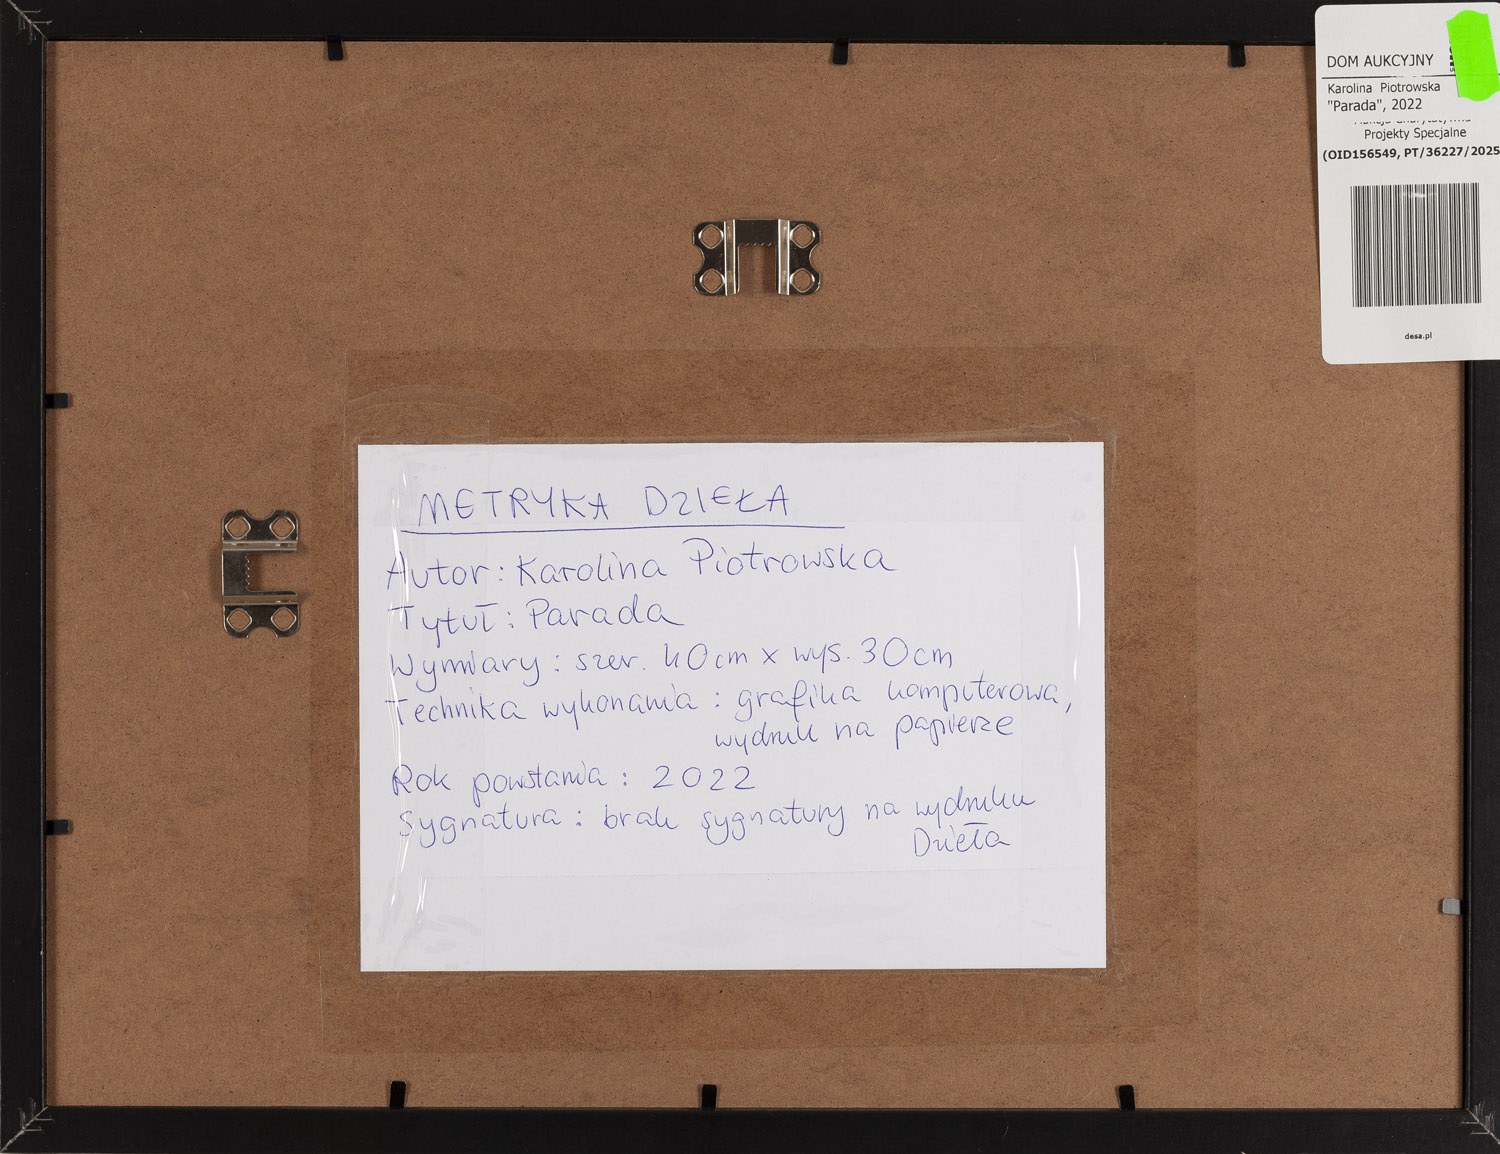 DOM AUKCYJNY
Karolina Piotrowska
"Parada", 2022
Projekty Specjalne
(OID156549, PT/36227/2025
desa.pl
METRYKA DZIEŁA
Autor: Karolina Piotrowska
Tytuł: Parada
Wymiary: szer. 40cm x wys. 30cm
Technika wykonania: grafika komputerowa,
wydruk na papierze
Rok powstania: 2022
Sygnatura: brak sygnatury na wydruku
Dzieła